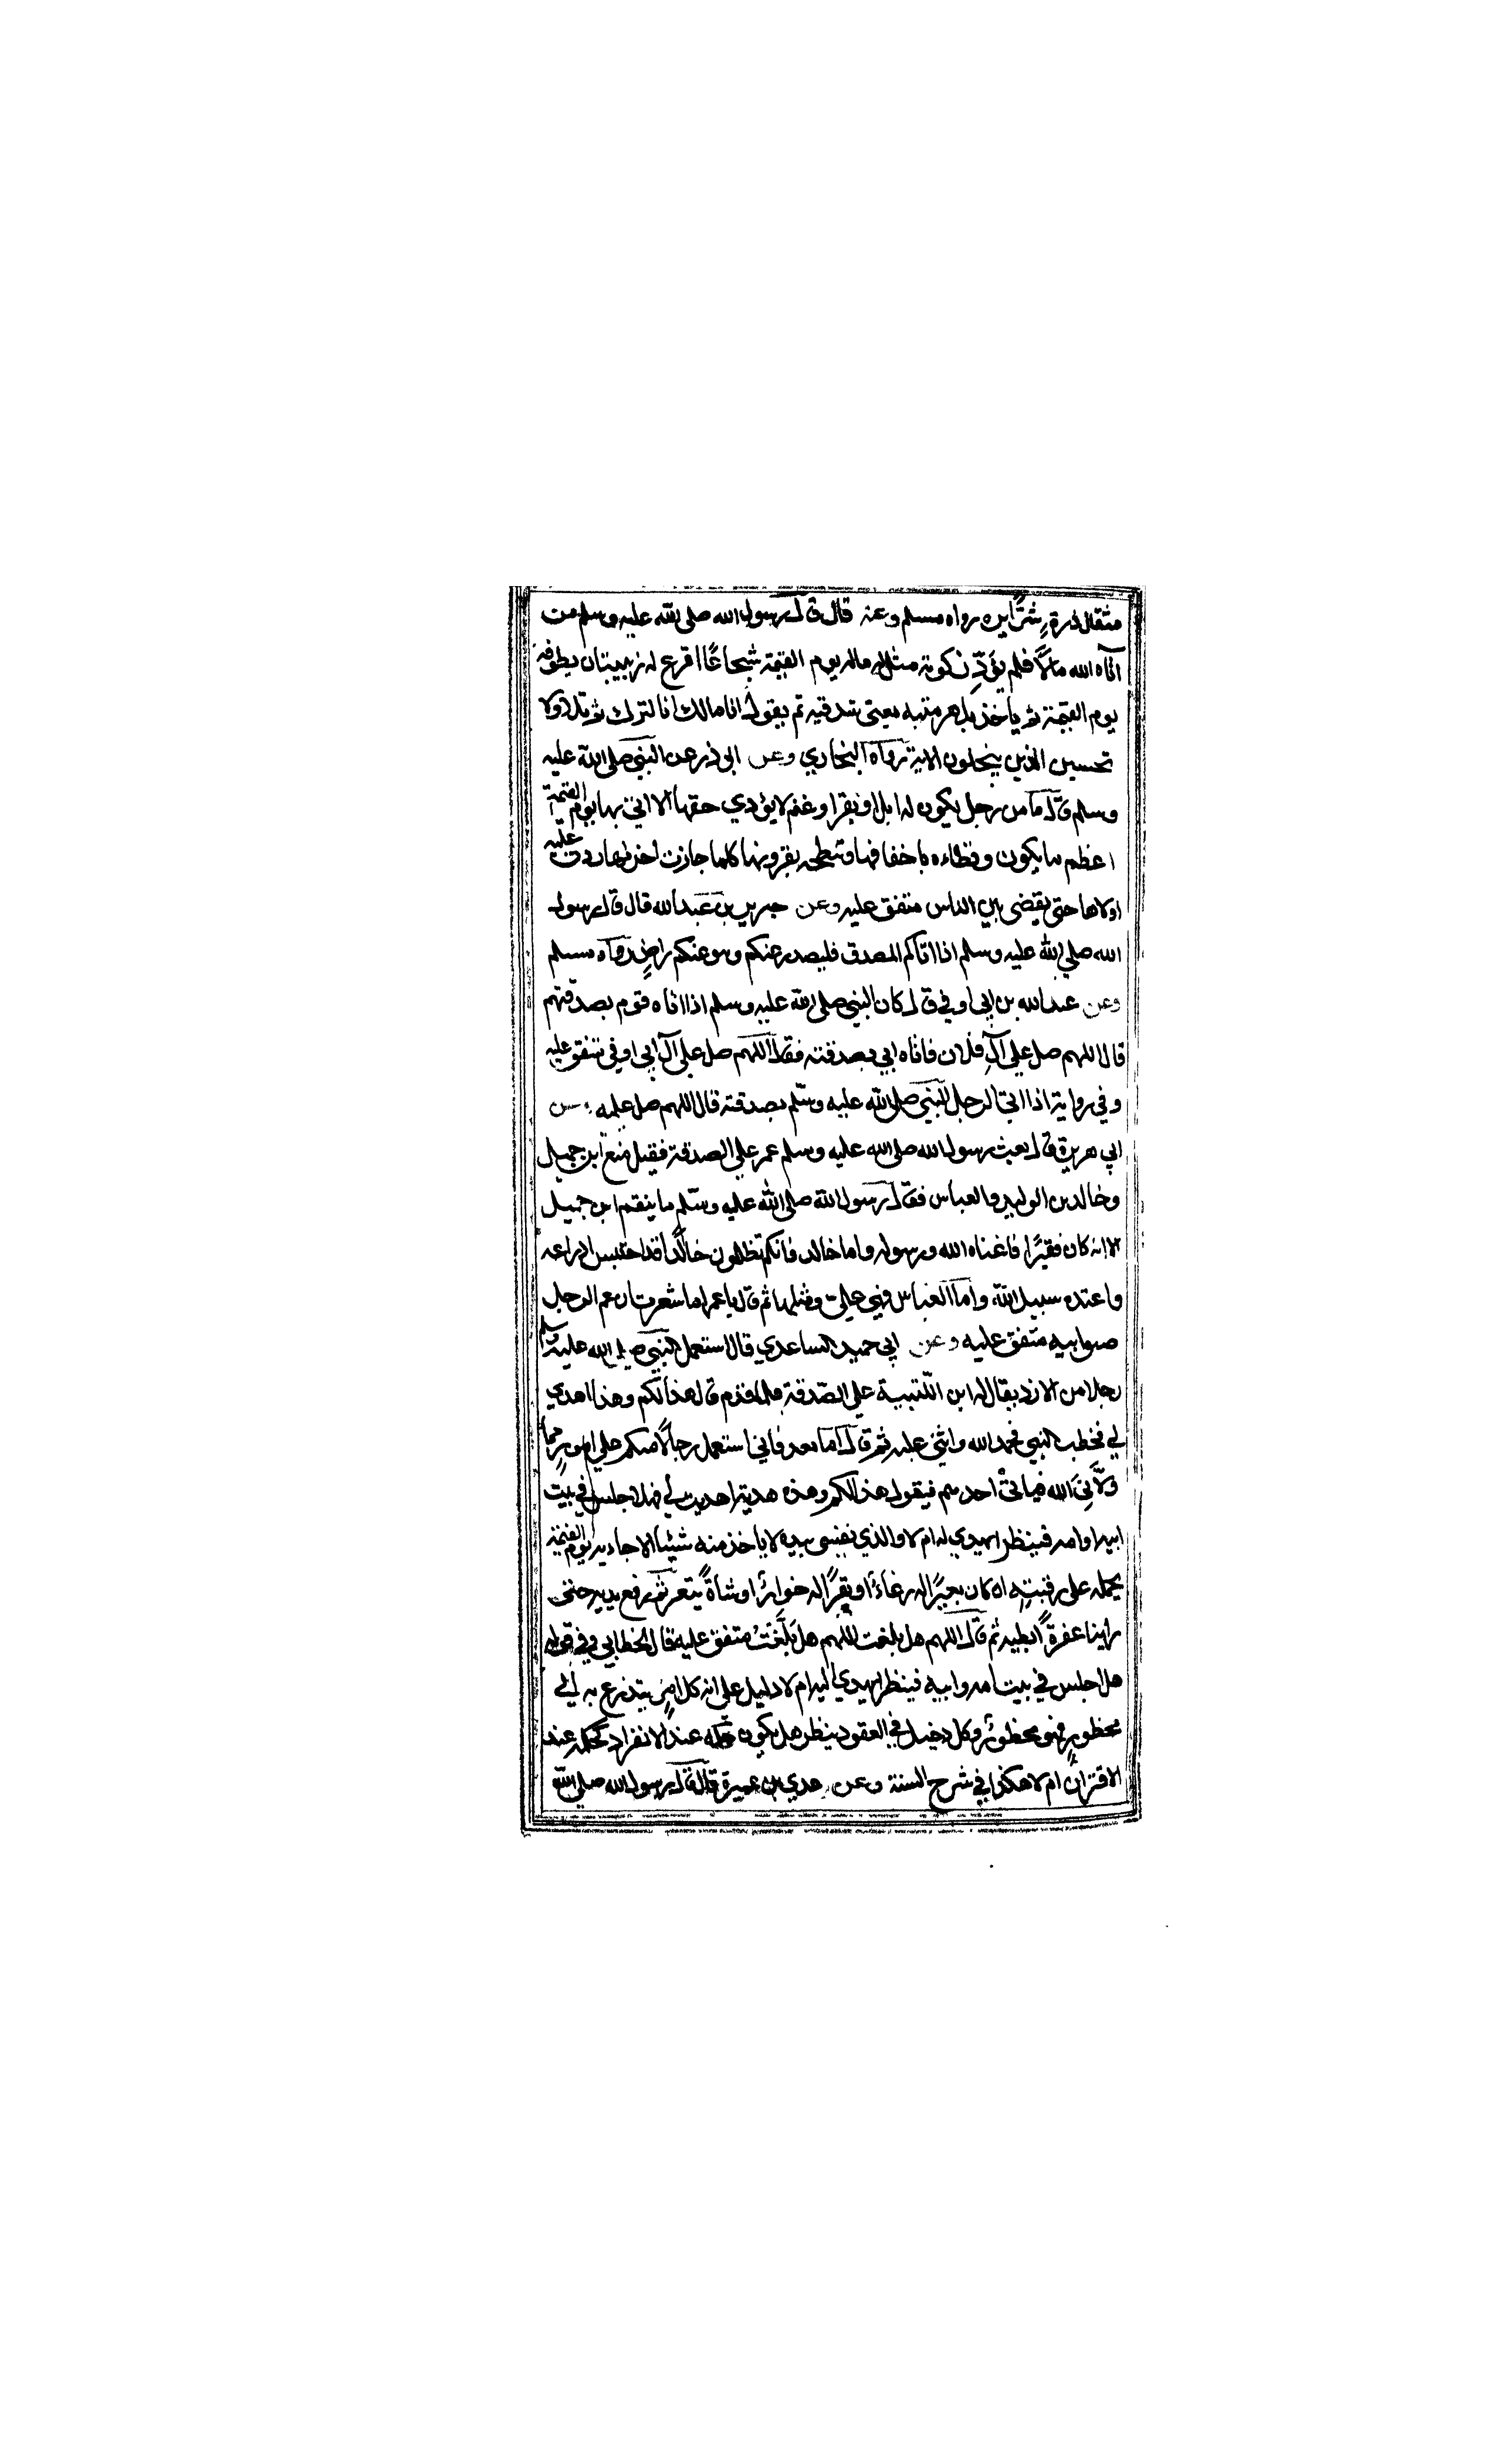 مثقال ذرة شرًّا يره رواه مسلم وعنه قال قال رسول الله صلى الله عليه وسلم من
آتاه الله مالًا فلم يؤدِّ زكوته مثل له ماله يوم القيمة شجاعًا اقرع له زبيبتان يطوقه
يوم القيمة ثم ياخذ بلهزمتيه يعنى شدقيه ثم يقول انا مالك انا كنزك ثم تلا ولا
تحسبن الذين يبخلون الاية رواه البخاري وعن ابى ذر عن النبي صلى الله عليه
وسلم قال ما من رجل يكون له ابل او بقر او غنم لا يؤدي حقها الا اتى بها يوم القيمة
اعظم ما يكون وتطاءه باخفافها وتنطحه بقرونها كلما جازت اخرٰها ردت عليه
اولاها حتى يقضى بين الناس متفق عليه وعن جرير بن عبد الله قال قال رسول
الله صلي الله عليه وسلم اذا اتاكم المصدق فليصدر عنكم وهو عنكم راضٍ رواه مسلم
وعن عبد الله بن ابي اوفي قال كان النبي صلى الله عليه وسلم اذا اتاه قوم بصدقتهم
قال اللهم صل علي آلِ فلان فاتاه ابي بصدقته فقال اللهم صل علي آل ابي اوفي متفق عليه
وفي رواية اذا اتى الرجل النبي صلى الله عليه وسلم بصدقته قال اللهم صل عليه وعن
ابي هريرة قال بعث رسول الله صلى الله عليه وسلم عمر علي الصدقة فقيل منع ابن جميل
وخالد بن الوليد والعباس فقال رسول الله صلى الله عليه وسلم ما ينقم ابن جميل
الا انه كان فقيرًا فاغناه الله ورسوله واما خالد فانكم تظلمون خالدًا قد احتبس ادراعه
واعتده سبيل الله واما العباس فهي علي ومثلها ثم قال يا عمر اما شعرت ان عم الرجل
صنو ابيه متفق عليه وعن ابي حميد الساعدي قال استعمل النبي صلى الله عليه وسلم
رجلا من الازد يقال له ابن اللتبية علي الصدقة فلما قدم قال هذا لكم وهذا اهدي
لي فخطب النبي فحمد الله واثنى عليه ثم قال اما بعد فاني استعمل رجالًا منكم علي امورٍ مما
ولَّانِيَ الله فياتىْ احدهم فيقول هذا لكم وهذه هدية اهديت لي فهلا جلس في بيت
ابيه او امه فينظر ايهدي له ام لا والذي نفسي بيده لا ياخذ منه شيئًا الا جاء به يوم القيمة
يحمله على رقبتهِ ان كان بعيرًا له رغاءٌ او بقرًا له خوارٌ او شاةً تيعر ثم رفع يديه حتى
راينا عفرةَ ابطيه ثم قال اللهم هل بلغت اللهم هل بلَّغتُ متفق عليه قال الخطابي وفي قوله
هل اجلس في بيت امه وابيه فينظر ايهدي اليه ام لا دليل على ان كل امرٍ يتذرع به الي
محظورٍ فهو محظورٌ وكل دخيل في العقود ينظر هل يكون حكمه عند الانفراد كحكمه عند
الاقتران ام لا هكذا في شرح السنة وعن عدي بن عميرة قال قال رسول الله صلى الله